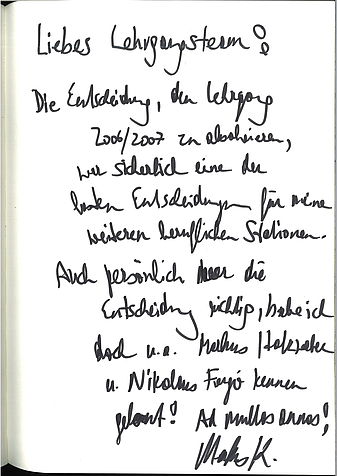 Liebes Lehrgangsteam!
Die Entscheidung, den Lehrgang
2006/2007 zu absolvieren,
war sicherlich eine der
besten Entscheidungen für meine
weiteren beruflichen Stationen.
Auch persönlich war die
Entscheidung richtig, habe ich
doch u.a. Markus
u. Nikolaus Forgó kennen
gelernt! Ad multos annos!
K.